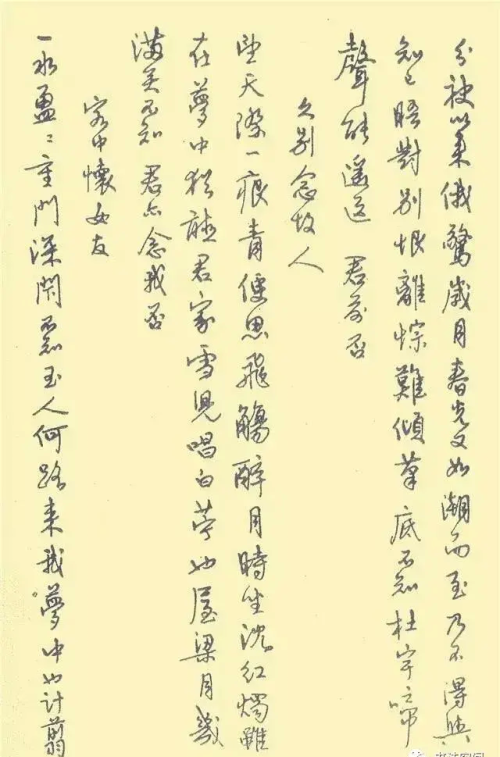 分袂以來俄驚歲月春光又如潮而至乃不得與
知己晤對別恨離悰難傾筆底不知杜宇啼
聲能遙達君旁否
久別念故人
墜天際一痕青便思飛觴醉月時坐沈紅燭雖
在夢中猶聽君家雪兒唱白苧也屋梁月幾
滿矣不知君亦念我否
客中懷女友
一水盈盈重門深閉不知玉人何路來我夢中也計翦